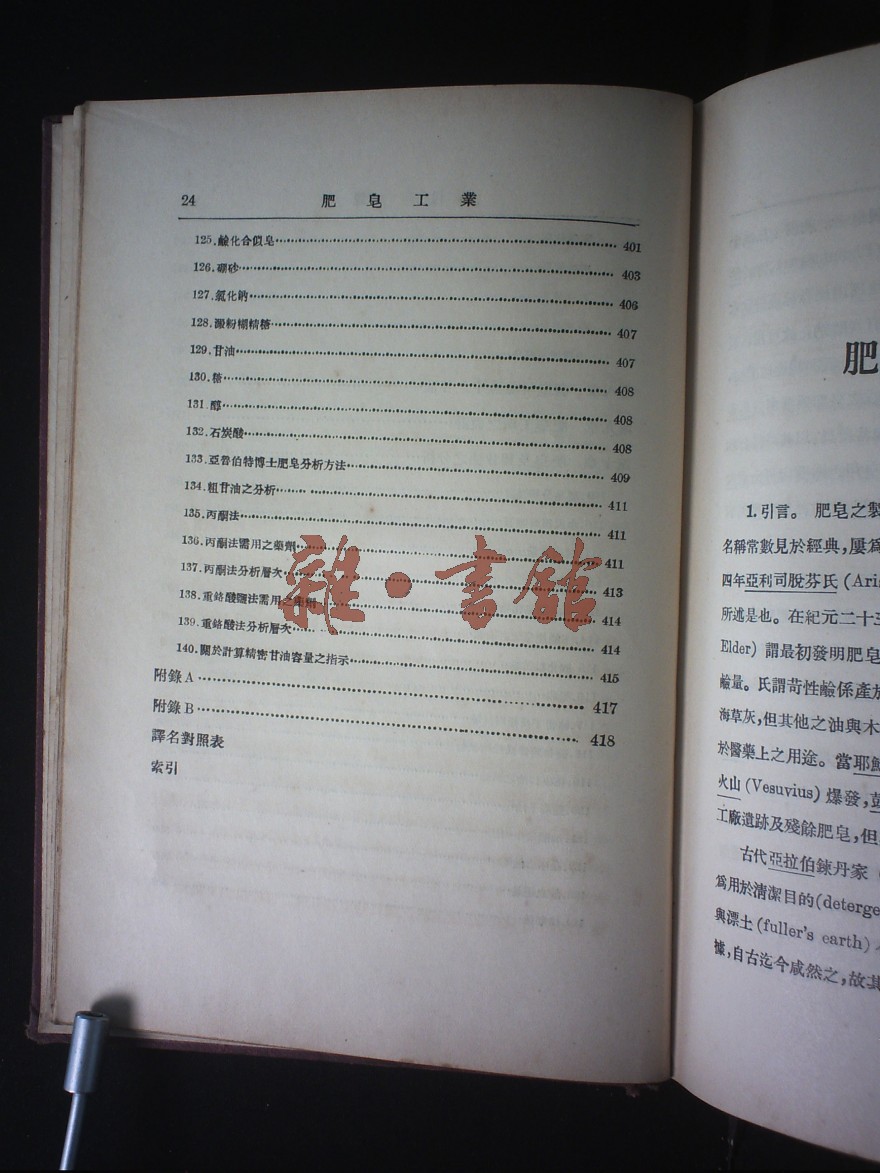 24 肥皂工業
125.鹼化合似皂 401
126.硼砂 403
127.氯化鈉 406
128.澱粉糊精糖 407
129.甘油 407
130.糖 408
131.醇 408
132.石炭酸 408
133.亞魯伯特博士肥皂分析方法 409
134.粗甘油之分析 411
135.丙酮法 411
136.丙酮法需用之藥劑 411
137.丙酮法分析層次 413
138.重鉻酸鹽法需用之藥劑 414
139.重鉻酸法分析層次 414
140.關於計算精密甘油容量之指示 415
附錄A 417
附錄B 418
譯名對照表
索引
雜·書館
肥
1.引言。 肥皂之製
名稱常數見於經典,屢爲
四年亞利司脫芬氏 (Aris
所述是也。在紀元二十三
Elder) 謂最初發明肥皂
鹼量。氏謂苛性鹼係產於
海草灰,但其他之油與木
於醫藥上之用途。當耶穌
火山 (Vesuvius) 爆發,
工廠遺跡及殘餘肥皂,但
古代亞拉伯鍊丹家
爲用於清潔目的(deterge
與漂土(fuller's earth)
據,自古迄今咸然之,故其